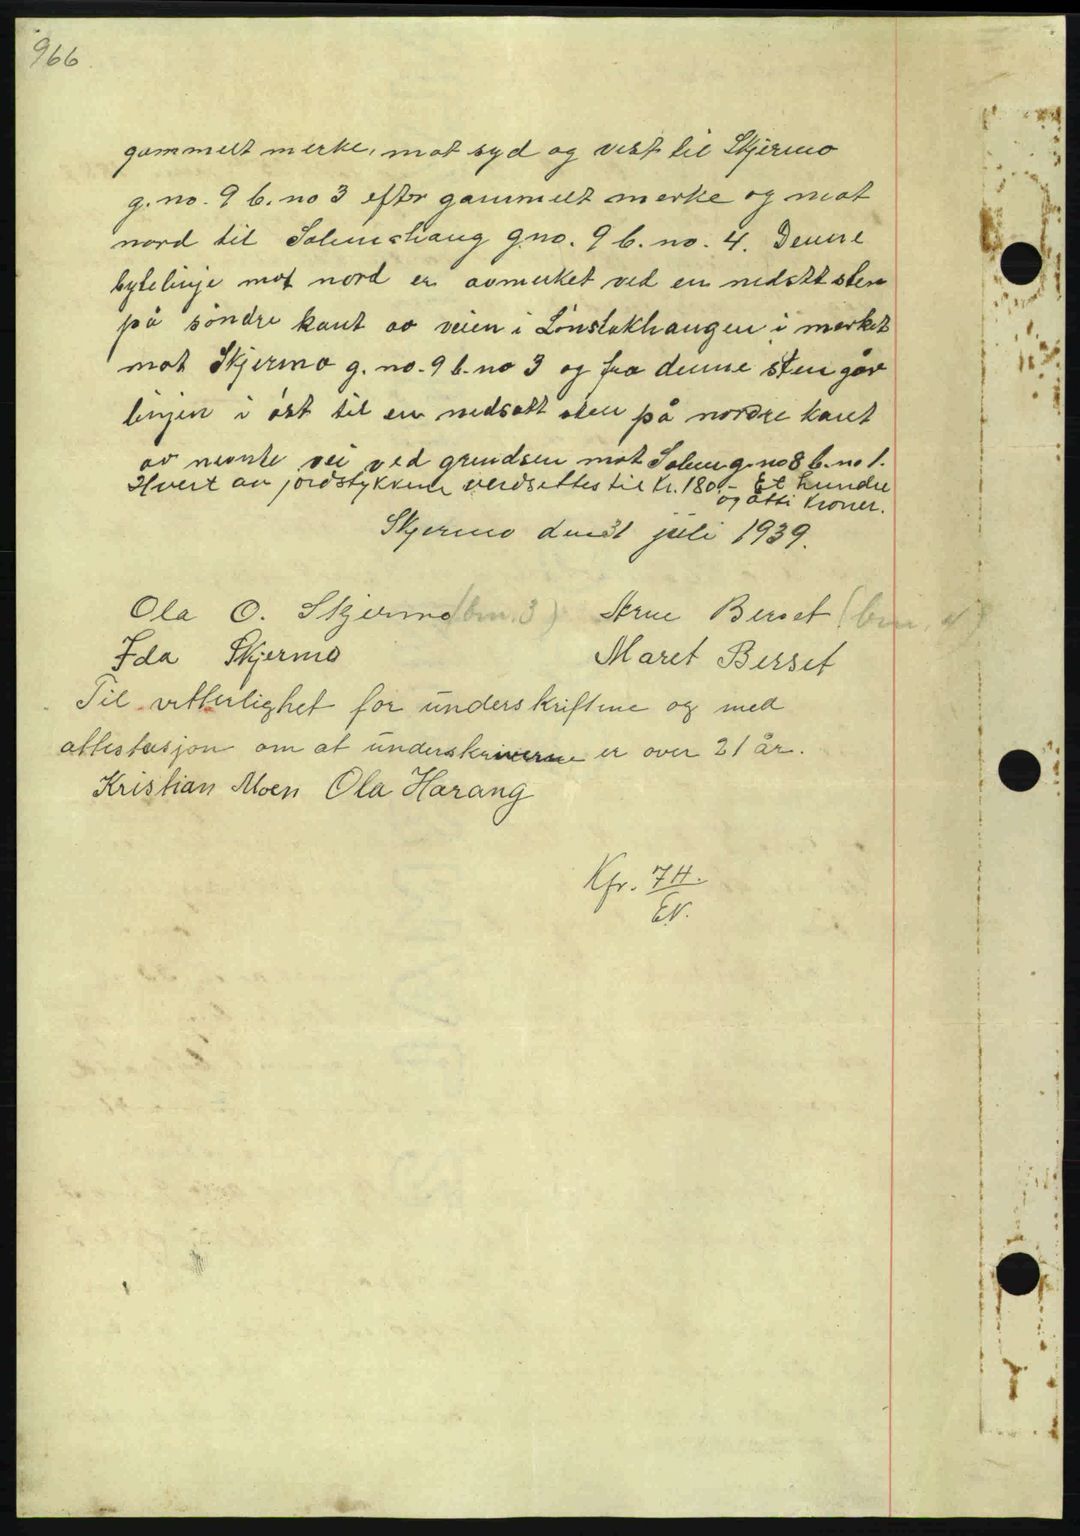 966
gammelt merke, mot syd og vest til Skjermo
g. no. 9 b. no 3 efter gammelt merke og mot
nord til Solemshaug g.no. 9 b. no. 4. Denne
bytelinje mot nord er avmerket ved en nedsatt sten
på söndre kant av veien i Lönstakhaugen i merket
mot Skjermo g. no. 9 b. no 3 og fra denne sten går
linjen i öst til en nedsatt sten på nordre kant
av nevnte vei ved grendsen mot Solem g. no 8 b. no 1.
Hvert av jordstykkene verdsettes til Kr. 180,- Et hundre
og åtti kroner.
Skjermo den 31 juli 1939.
Ola O. Skjermo (bnr. 3) Arne Berset (bnr. 4)
Ida Skjermo Maret Berset
Til vitterlighet for underskriftene og med
attestasjon om at underskriverne er over 21 år.
Kristian Moen Ola Harang
Kfr. 7H.
EN.